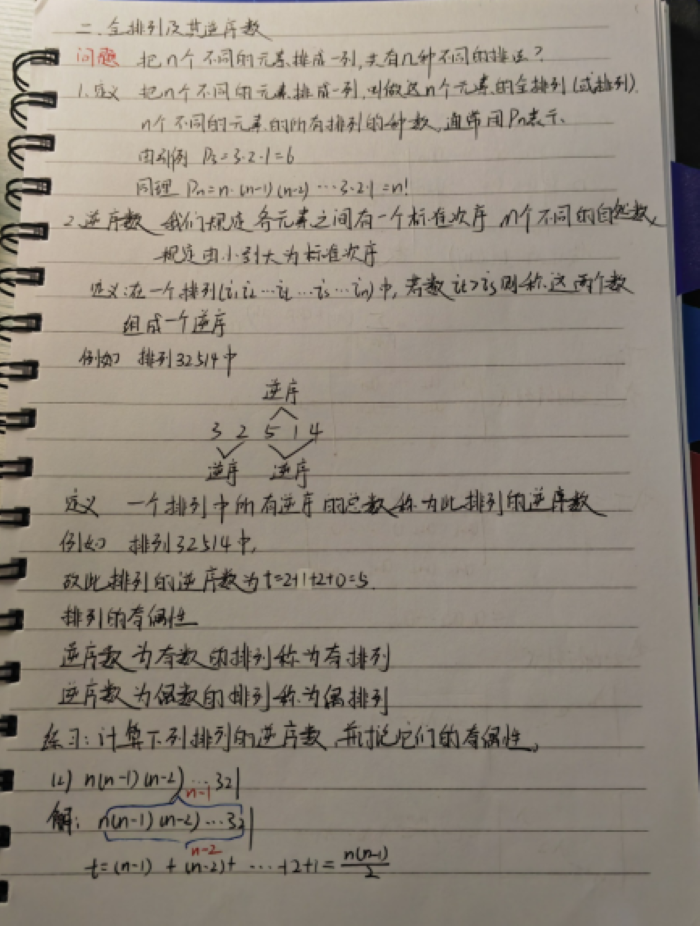 二、全排列及其逆序数
问题 把n个不同的元素排成一列,共有几种不同的排法?
1.定义 把n个不同的元素排成一列,叫做这n个元素的全排列(或排列).
n个不同的元素的所有排列的种数,通常用Pn表示.
由引例 P3=3·2·1=6
同理 Pn=n·(n-1)(n-2)···3·2·1=n!
2.逆序数 我们规定各元素之间有一个标准次序 n个不同的自然数,
规定由小到大为标准次序
定义:在一个排列(i1i2···it···is···in)中,若数it>is则称这两个数
组成一个逆序
例如 排列32514中
逆序
3 2 5 1 4
逆序 逆序
定义 一个排列中所有逆序的总数称为此排列的逆序数
例如 排列32514中,
故此排列的逆序数为t=2+1+2+0=5.
排列的奇偶性
逆序数为奇数的排列称为奇排列
逆序数为偶数的排列称为偶排列
练习:计算下列排列的逆序数,并讨论它们的奇偶性,
(2) n(n-1)(n-2)···321
n-1
解: n(n-1)(n-2)···321
n-2
t=(n-1)+(n-2)+···+2+1=n(n-1)/2